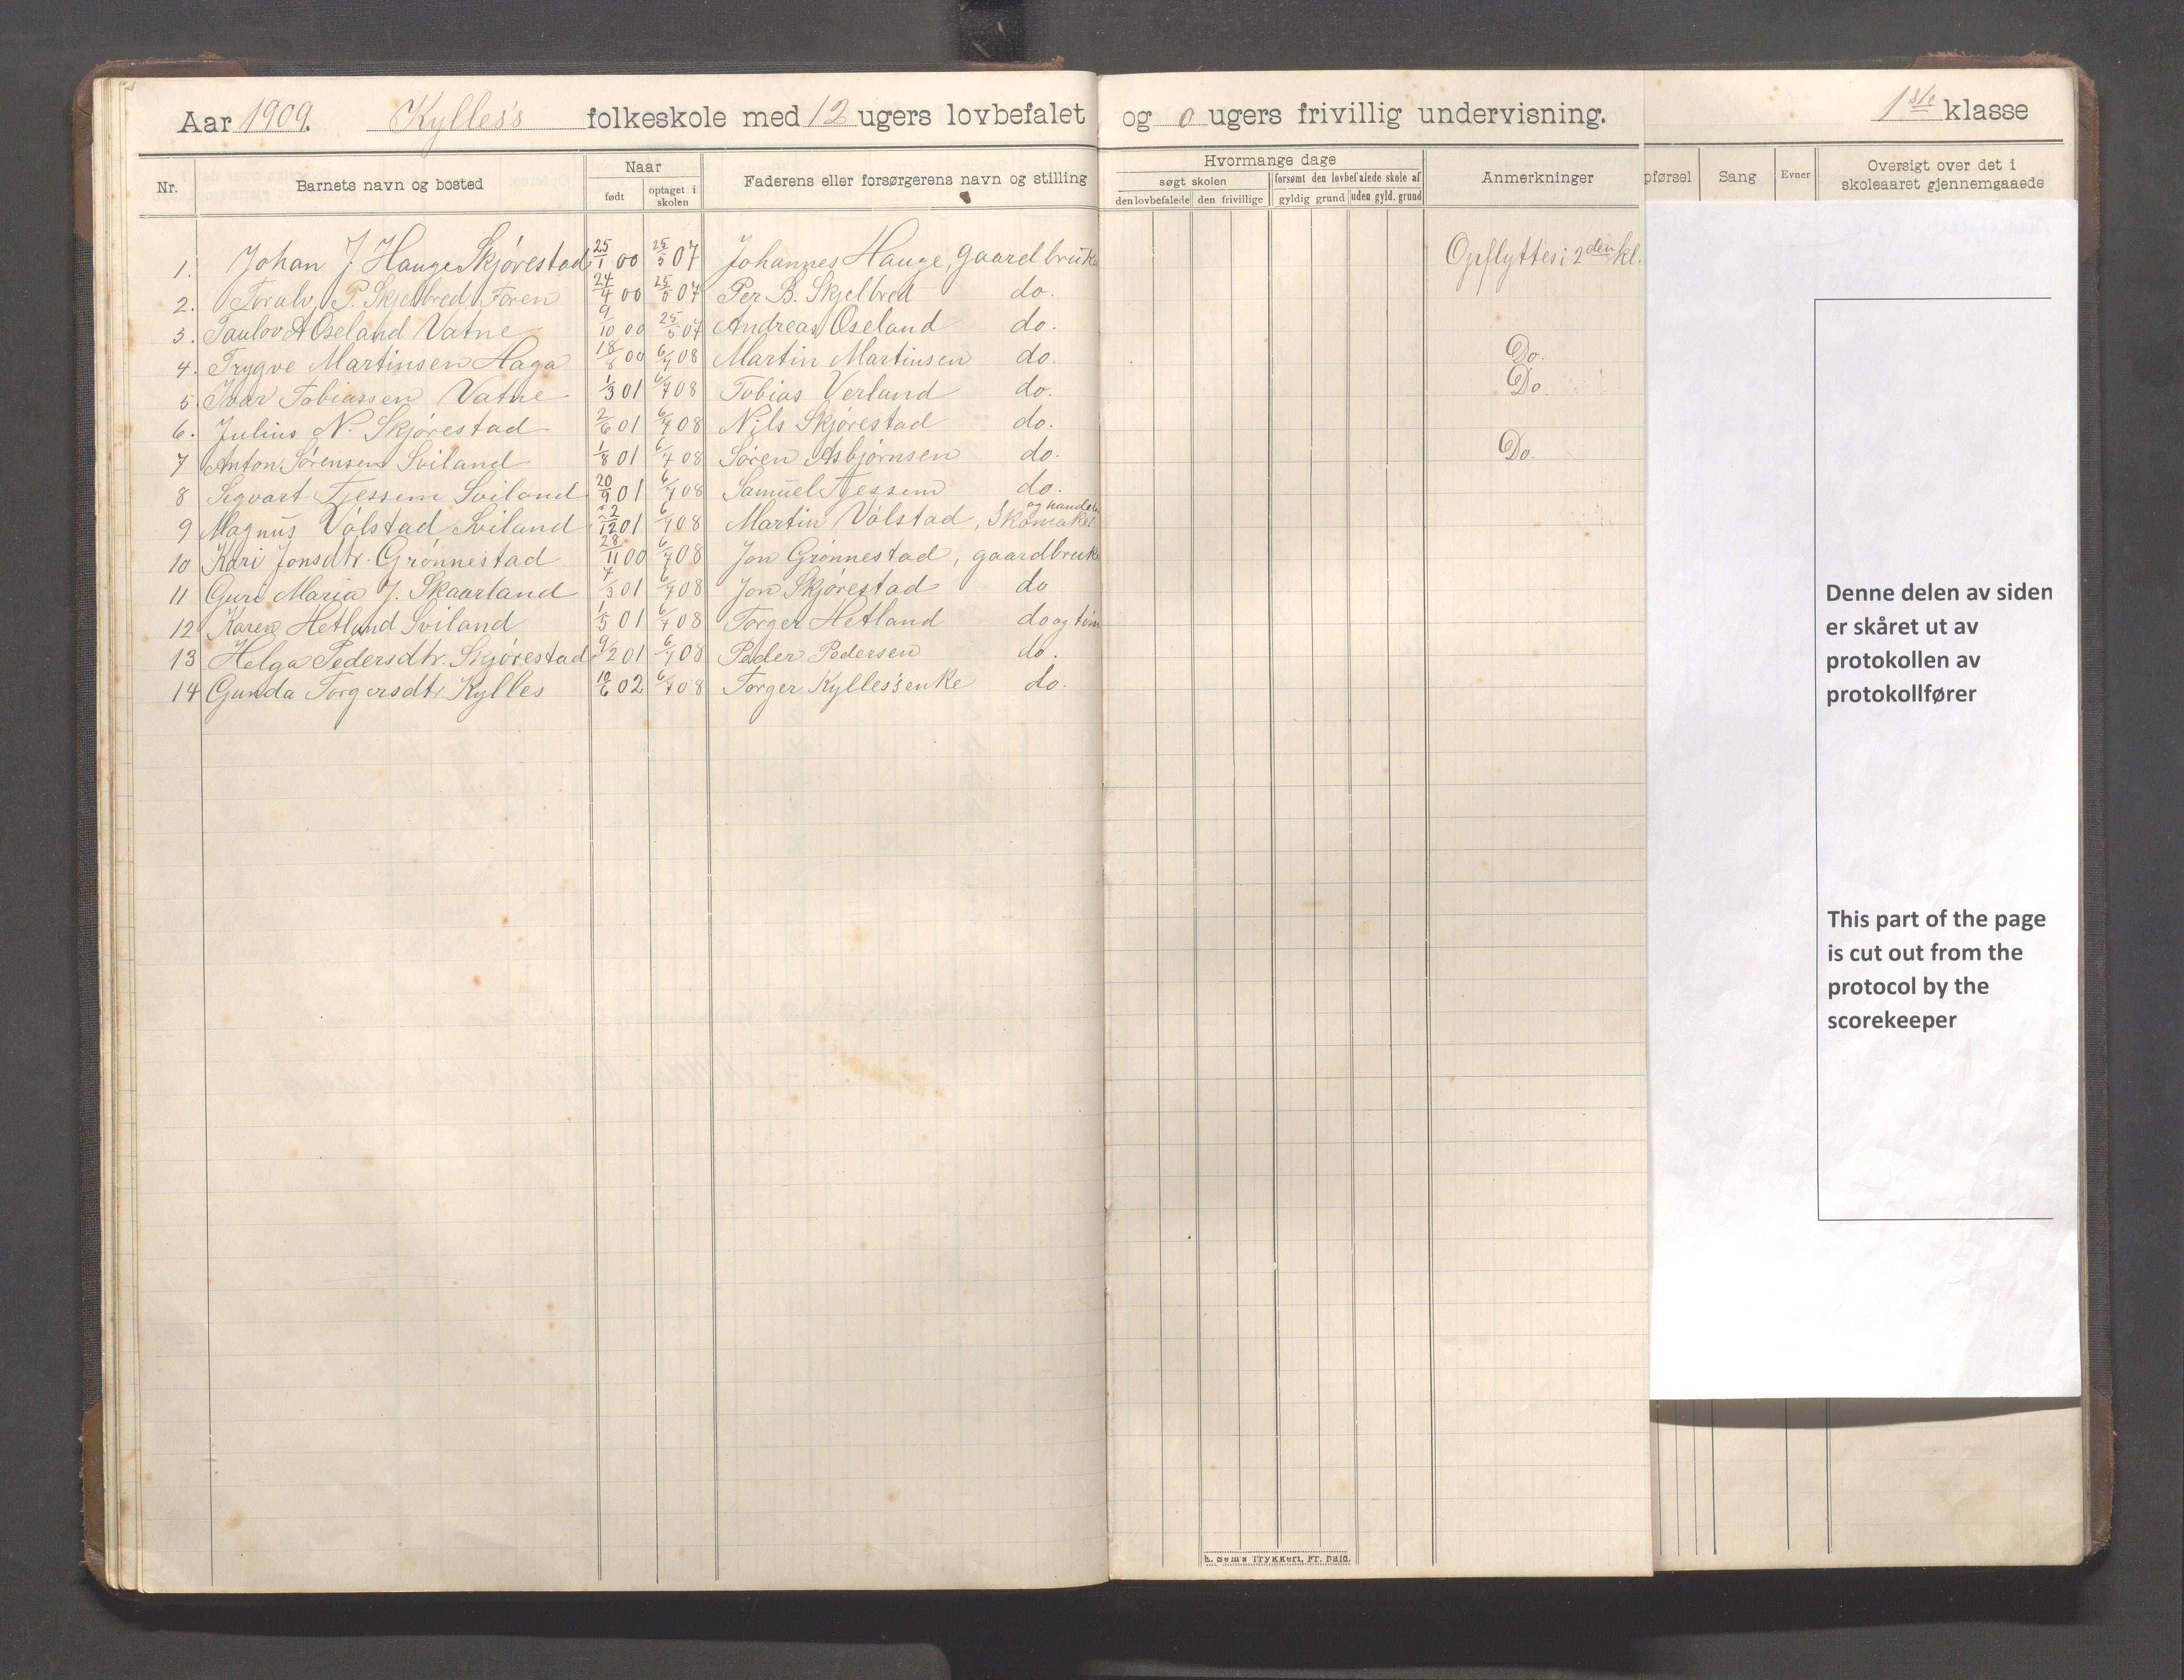 Aar 1909. Kylles's folkeskole med 12 ugers lovbefalet og 0 ugers frivillig undervisning. 1ste klasse
Nr. Barnets navn og bosted Naar født optaget i skolen Faderens eller forsørgerens navn og stilling Hvormange dage søgt skolen den lovbefalede den frivillige forsømt den lovbefalede skole af gyldig grund uden gyld. grund Anmerkninger pførsel Sang Evner Oversigt over det i skoleaaret gjennemgaaede
1. Johan J. Hauge Skjørestad 25/1 00 25/5 07 Johannes Hauge, gaardbruke Opflyttes i 2den kl.
2. Toralv P. Skjelbred, Foren 24/4 00 25/5 07 Per B. Skjelbred do.
3. Paulov A Oseland Vatne 9/10 00 25/5 07 Andreas Oseland do.
4. Trygve Martinsen Haga 18/8 00 6/7 08 Martin Martinsen do. Do.
5. Ivar Tobiassen Vatne 1/3 01 6/7 08 Tobias Verland do. Do.
6. Julius N. Skjørestad 2/6 01 6/7 08 Nils Skjørestad do.
7 Anton Sørensen Sviland 1/8 01 6/7 08 Søren Asbjørnsen do. Do.
8 Sigvart Tjessem Sviland 20/9 01 6/7 08 Samuel Tjessem do.
9 Magnus Volstad Sviland 22/12 01 6/7 08 Martin Volstad, Skomaker og handels
10 Kari Jonsdtr. Grønnestad 28/11 00 6/7 08 Jon Grønnestad, gaardbruke
11 Guri Maria J. Skaarland 7/3 01 6/7 08 Jon Skjørestad do
12 Karen Hetland Sviland 1/5 01 6/7 08 Torger Hetland do og tøm
13 Helga Pedersdtr. Skjørestad 9/2 01 6/7 08 Peder Pedersen do.
14 Gunda Torgersdtr. Kylles 10/6 02 6/7 08 Torger Kylles's enke do.
Denne delen av siden
er skåret ut av
protokollen av
protokollfører
This part of the page
is cut out from the
protocol by the
scorekeeper
E. Sem's Trykkeri, Fr.hald.